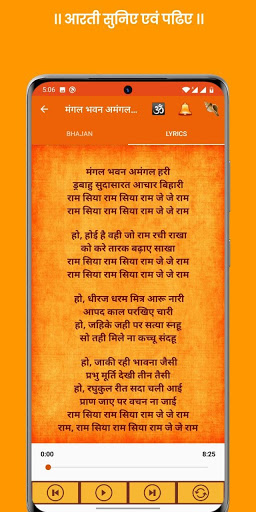 ॥ आरती सुनिए एवं पढिए ॥
5:06
मंगल भवन अमंगल...
BHAJAN
LYRICS
मंगल भवन अमंगल हरी
ड़बाहु सुदासारत आचार बिहारी
राम सिया राम सिया राम जे जे राम
राम सिया राम सिया राम जे जे राम
हो, होई है वही जो राम रची राखा
को करे तारक बढ़ाए साखा
राम सिया राम सिया राम जे जे राम
राम सिया राम सिया राम जे जे राम
हो, धीरज धरम मित्र आरू नारी
आपद काल परखिए चारी
हो, जहिके जही पर सत्या स्नहू
सो तही मिले ना कच्चू संदहू
हो, जाकी रही भावना जैसी
प्रभु मूर्ति देखी तीन तैसी
हो, रघुकुल रीत सदा चली आई
प्राण जाए पर वचन ना जाई
राम सिया राम सिया राम जे जे राम
राम, राम सिया राम सिया राम जे जे राम
0:00
8:25